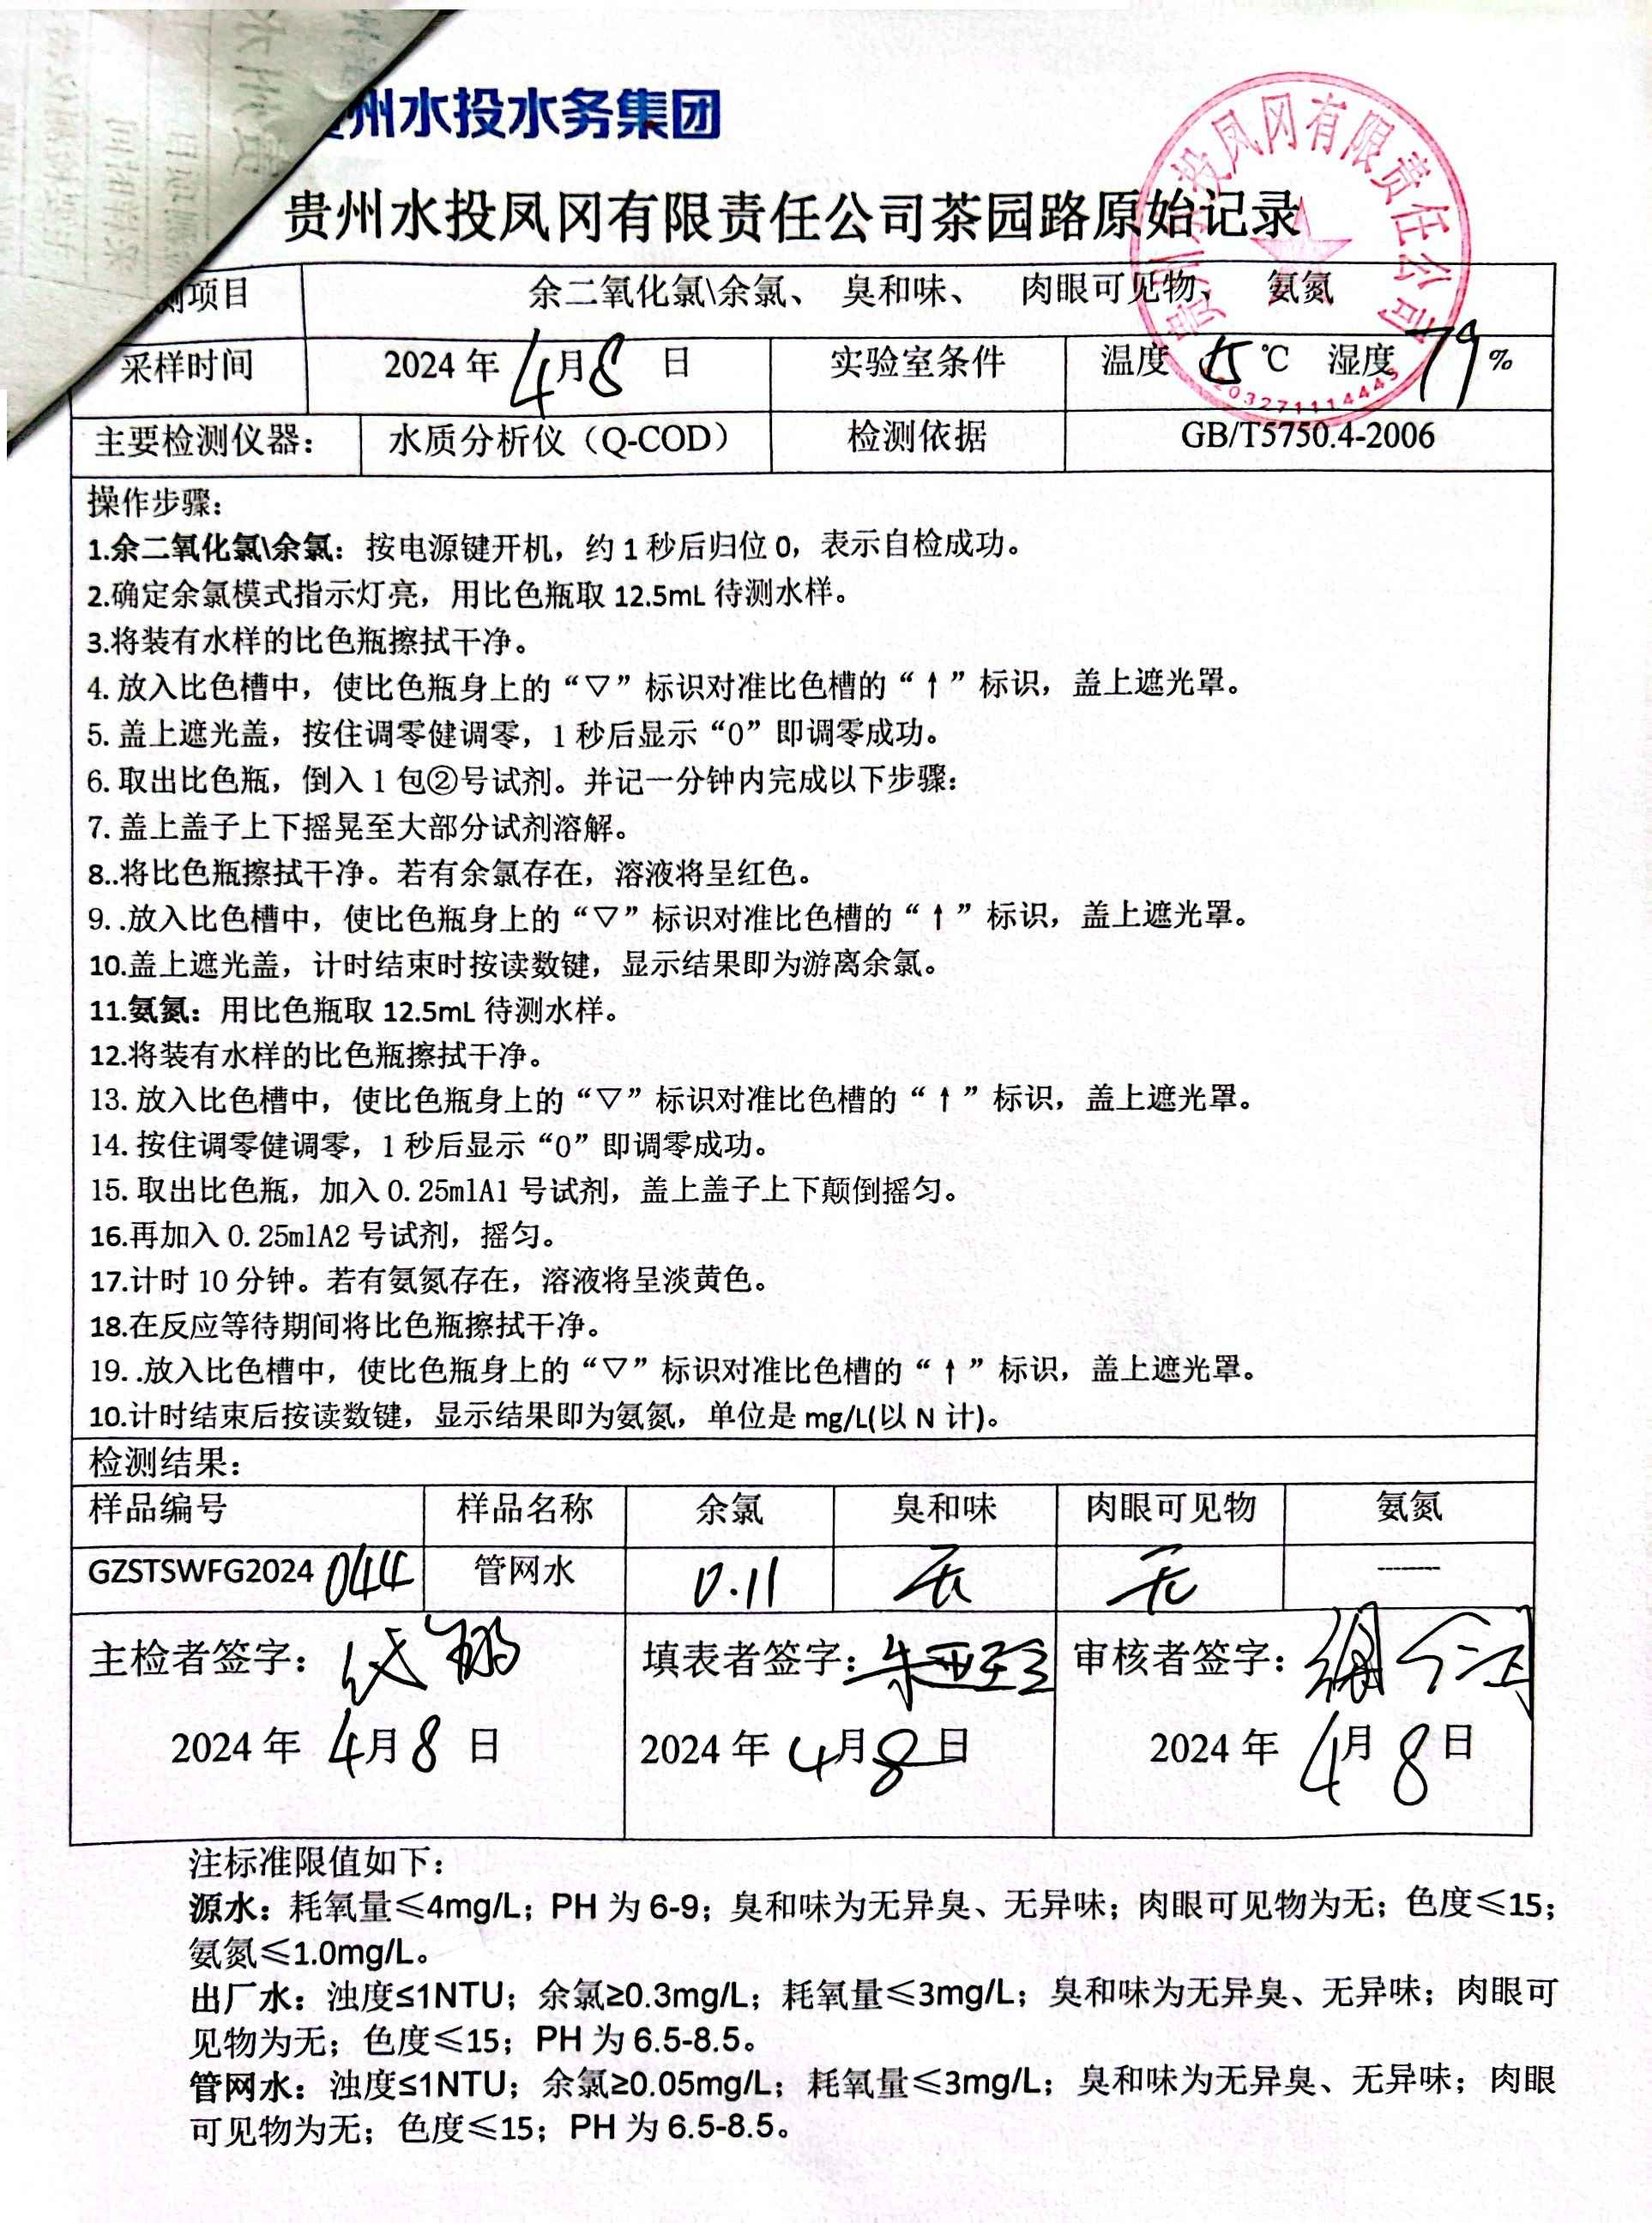 州水投水务集团
贵州水投凤冈有限责任公司茶园路原始记录
投凤冈有限责任公司
5203271114443
测项目 余二氧化氯\余氯、 臭和味、 肉眼可见物、 氨氮
采样时间 2024 年 4 月 8 日 实验室条件 温度 15 ℃ 湿度 79 %
主要检测仪器： 水质分析仪（Q-COD） 检测依据 GB/T5750.4-2006
操作步骤：
1.余二氧化氯\余氯：按电源键开机，约 1 秒后归位 0，表示自检成功。
2.确定余氯模式指示灯亮，用比色瓶取 12.5mL 待测水样。
3.将装有水样的比色瓶擦拭干净。
4. 放入比色槽中，使比色瓶身上的“▽”标识对准比色槽的“↑”标识，盖上遮光罩。
5. 盖上遮光盖，按住调零健调零，1 秒后显示“0”即调零成功。
6. 取出比色瓶，倒入 1 包②号试剂。并记一分钟内完成以下步骤：
7. 盖上盖子上下摇晃至大部分试剂溶解。
8..将比色瓶擦拭干净。若有余氯存在，溶液将呈红色。
9. .放入比色槽中，使比色瓶身上的“▽”标识对准比色槽的“↑”标识，盖上遮光罩。
10.盖上遮光盖，计时结束时按读数键，显示结果即为游离余氯。
11.氨氮：用比色瓶取 12.5mL 待测水样。
12.将装有水样的比色瓶擦拭干净。
13. 放入比色槽中，使比色瓶身上的“▽”标识对准比色槽的“↑”标识，盖上遮光罩。
14. 按住调零健调零，1 秒后显示“0”即调零成功。
15. 取出比色瓶，加入 0.25mlA1 号试剂，盖上盖子上下颠倒摇匀。
16.再加入 0.25mlA2 号试剂，摇匀。
17.计时 10 分钟。若有氨氮存在，溶液将呈淡黄色。
18.在反应等待期间将比色瓶擦拭干净。
19. .放入比色槽中，使比色瓶身上的“▽”标识对准比色槽的“↑”标识，盖上遮光罩。
10.计时结束后按读数键，显示结果即为氨氮，单位是 mg/L(以 N 计)。
检测结果：
样品编号 样品名称 余氯 臭和味 肉眼可见物 氨氮
GZSTSWFG2024 044 管网水 0.11 无 无 ------
主检者签字： 填表者签字： 审核者签字：
2024 年 4 月 8 日 2024 年 4 月 8 日 2024 年 4 月 8 日
注标准限值如下：
源水：耗氧量≤4mg/L；PH 为 6-9；臭和味为无异臭、无异味；肉眼可见物为无；色度≤15；
氨氮≤1.0mg/L。
出厂水：浊度≤1NTU；余氯≥0.3mg/L；耗氧量≤3mg/L；臭和味为无异臭、无异味；肉眼可
见物为无；色度≤15；PH 为 6.5-8.5。
管网水：浊度≤1NTU；余氯≥0.05mg/L；耗氧量≤3mg/L；臭和味为无异臭、无异味；肉眼
可见物为无；色度≤15；PH 为 6.5-8.5。